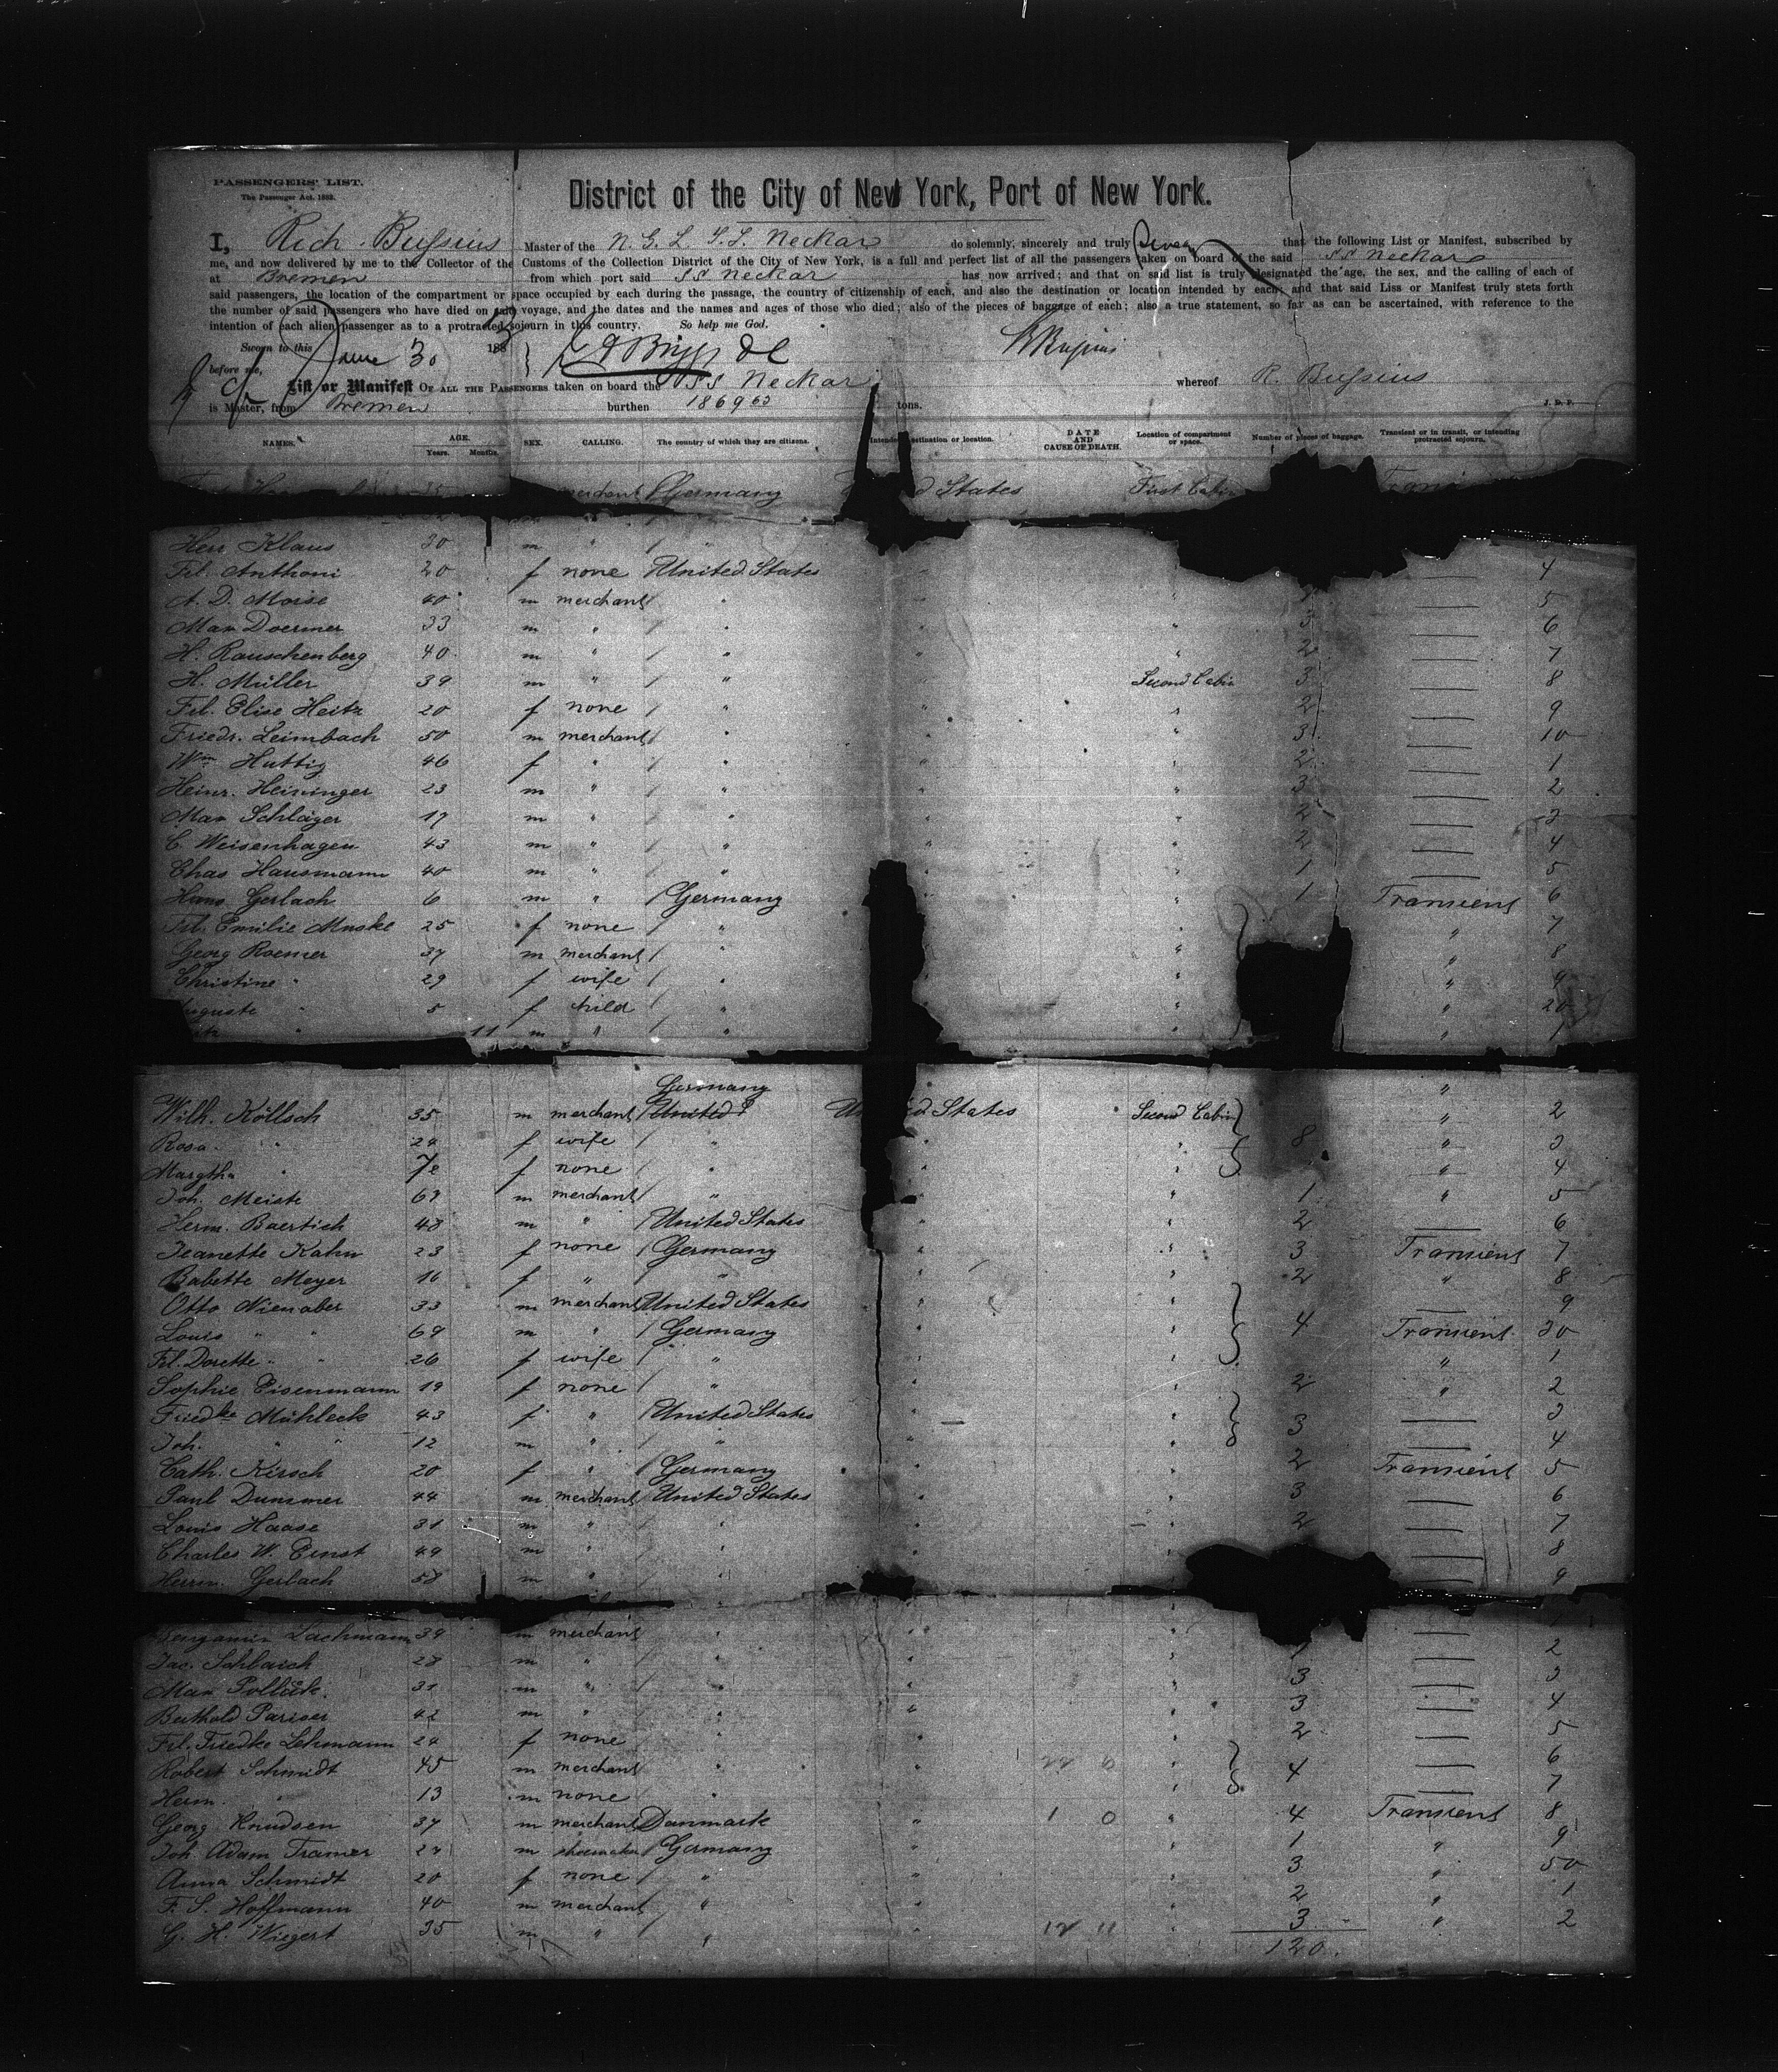 PASSENGERS' LIST.
The Passenger Act, 1882.
District of the City of New York, Port of New York.
I, Rich. Bussius Master of the N. G. L. S.S. Neckar do solemnly, sincerely and truly swear that the following List or Manifest, subscribed by
me, and now delivered by me to the Collector of the Customs of the Collection District of the City of New York, is a full and perfect list of all the passengers taken on board of the said SS Neckar
at Bremen from which port said SS Neckar has now arrived; and that on said list is truly designated the age, the sex, and the calling of each of
said passengers, the location of the compartment or space occupied by each during the passage, the country of citizenship of each, and also the destination or location intended by each; and that said Liss or Manifest truly stets forth
the number of said passengers who have died on said voyage, and the dates and the names and ages of those who died; also of the pieces of baggage of each; also a true statement, so far as can be ascertained, with reference to the
intention of each alien passenger as to a protracted sojourn in this country. So help me God.
Sworn to this June 30 188
before me,
List or Manifest OF ALL THE PASSENGERS taken on board the SS Neckar whereof R. Bussius
is Master, from Bremen burthen 1869 63 tons. J. D. P.
NAMES. AGE. Years. Months. SEX. CALLING. The country of which they are citizens. Intended destination or location. DATE AND CAUSE OF DEATH. Location of compartment or space. Number of pieces of baggage. Transient or in transit, or intending protracted sojourn.
merchant Germany States First Cabin
Herr Klaus 30 m " "
Frl. Anthoni 20 f none United States " 4
A. D. Moise 40 m merchant " " " 5
Max Doermer 33 m " " " 3 6
H. Rauschenberg 40 m " " " " 2 7
H. Müller 39 m " " " Second Cabin 3 8
Frl. Elise Heitz 20 f none " " " 2 9
Friedr. Leimbach 50 m merchant " " " 3 10
Wm Huttig 46 f " " " " 2 1
Heinr. Heininger 23 m " " " " 3 2
Max Schläger 19 m " " " " 2 3
C. Weisenhagen 43 m " " " " 2 4
Chas Hausmann 40 m " " " " 1 5
Hans Gerlach 6 m " Germany " " 1 Transient 6
Frl. Emilie Muske 25 f none " " " " 7
Georg Roemer 37 m merchant " " " " 8
Christine " 29 f wife " " " " 9
Auguste " 5 f child " " " " 20
" 11 m " " " " 1
Germany "
Wilh. Köllsch 35 m merchant United S United States Second Cabin " 2
Rosa " 24 f wife " " " 8 " 3
Margtha " f none " " " " 4
Joh. Meiste 69 m merchant " " " 1 " 5
Herm. Baertich 48 m " United States " " 2 6
Jeanette Kahn 23 f none Germany " " 3 Transient 7
Babette Meyer 16 f " " " " 2 " 8
Otto Nienaber 33 m merchant United States " " 9
Louis " " 69 m " Germany " " 4 Transient 30
Frl. Dorette " " 26 f wife " " " " 1
Sophie Eisenmann 19 f none " " " 2 " 2
Friedke Mühleck 43 f " United States " " 3 3
Joh. " " 12 m " " " " 4
Cath. Kirsch 20 f " Germany " " 2 Transient 5
Paul Dummer 44 m merchant United States " " 3 6
Louis Haase 31 m " " " " 2 7
Charles W. Ernst 49 m " " " " 8
Herm. Gerlach 58 m " " " " 9
Benjamin Lachmann 39 m merchant " " "
Jac. Schlaich 28 m " " " " 2
Max Pollack 31 m " " " " 3 3
Berthold Pariser 42 m " " " " 3 4
Frl. Friedke Lehmann 24 f none " " " 2 5
Robert Schmidt 45 m merchant " " " 4 6
Herm. " 13 m none " " " 7
Georg Knudsen 37 m merchant Danmark " 1 0 " 4 Transient 8
Joh. Adam Tramer 24 m shoemaker Germany " " 1 " 9
Anna Schmidt 20 f none " " " 3 " 50
F. S. Hoffmann 40 m merchant " " " 2 " 1
G. H. Wiegert 35 m " " " 12 11 " 3 " 2
120.